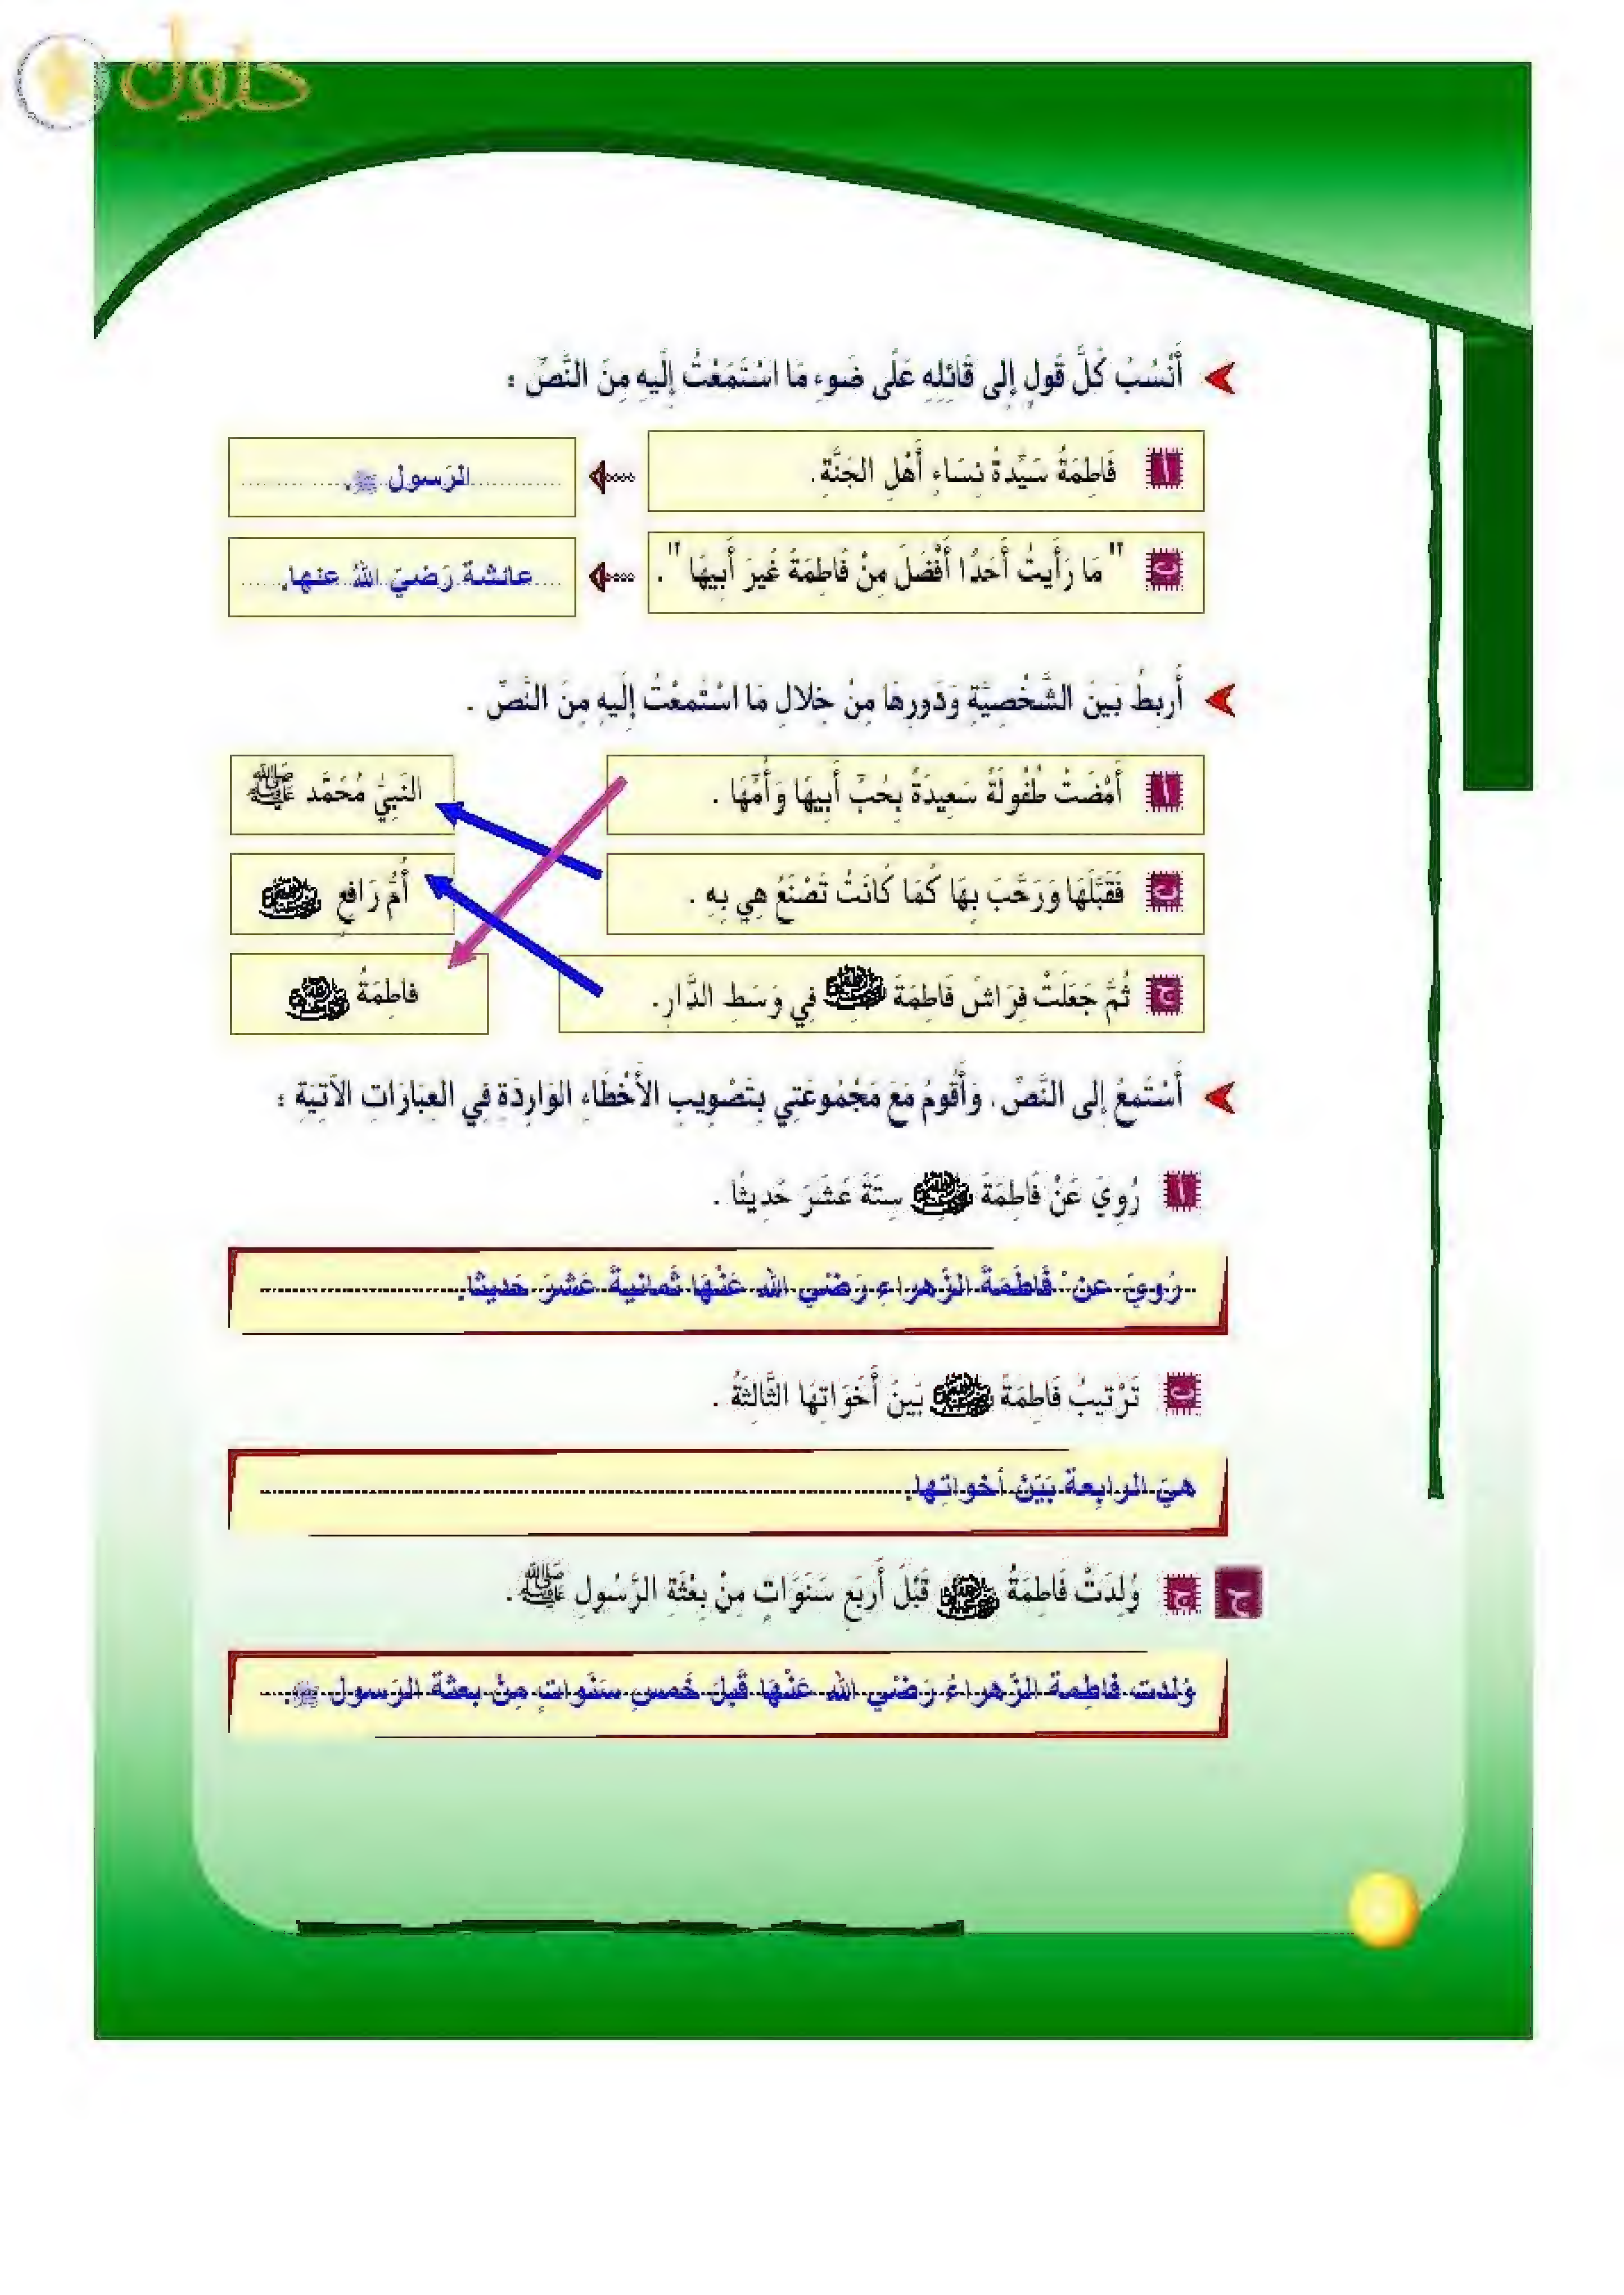 حلول
أَنْسُبُ كُلَّ قَولٍ إِلى قَائِلِهِ عَلَى ضَوءِ مَا اسْتَمَعْتُ إِلَيهِ مِنَ النَّصِّ :
أ فَاطِمَةُ سَيِّدَةُ نِسَاءِ أَهْلِ الجَنَّةِ. الرَسول ﷺ.
ب " مَا رَأَيتُ أَحَدًا أَفْضَلَ مِنْ فَاطِمَةَ غَيرَ أَبِيهَا ". عائشة رَضيَ اللهُ عنها.
أَربِطُ بَينَ الشَّخْصِيَّةِ وَدَورِهَا مِنْ خِلالِ مَا اسْتَمعْتُ إِلَيهِ مِنَ النَّصِّ .
أ أَمْضَتْ طُفُولَةً سَعِيدَةً بِحُبِّ أَبِيهَا وَأُمِّهَا . النَبِيُّ مُحَمَّد ﷺ
ب فَقَبَّلَهَا وَرَحَّبَ بِهَا كَمَا كَانَتْ تَصْنَعُ هِي بِهِ . أُمُّ رَافِعٍ رضي الله عنها
ج ثُمَّ جَعَلَتْ فِرَاشَ فَاطِمَةَ رضي الله عنها فِي وَسَطِ الدَّارِ. فَاطِمَةُ رضي الله عنها
أَسْتَمِعُ إِلى النَّصِّ، وَأَقُومُ مَعَ مَجْمُوعَتِي بِتَصْوِيبِ الأَخْطَاءِ الوَارِدَةِ فِي العِبَارَاتِ الآتِيَةِ :
أ رُوِيَ عَنْ فَاطِمَةَ رضي الله عنها سِتَّةَ عَشَرَ حَدِيثًا .
رُوِيَ عن فَاطَمَةَ الزَهراءِ رَضْي الله عَنْهَا ثَمانيةَ عَشرَ حَديثًا.
ب تَرْتِيبُ فَاطِمَةَ رضي الله عنها بَينَ أَخَوَاتِهَا الثَّالِثَةُ .
هيَ الرابِعة بَيَنَ أخواتِها.
ج وُلِدَتْ فَاطِمَةُ رضي الله عنها قَبْلَ أَربَعِ سَنَوَاتٍ مِنْ بِعْثَةِ الرَّسُولِ ﷺ .
وَلدت فاطِمة الزَهراءُ رَضْي الله عَنْهَا قَبلَ خَمسِ سَنَواتٍ مِنْ بعثة الرَسول ﷺ.